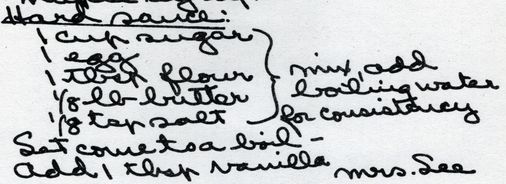 Hard sauce:
1 cup sugar
1 egg
1 tbsp flour
1/8 lb butter
1/8 tsp salt
mix, add
boiling water
for consistancy
Set come to a boil -
add 1 tbsp vanilla
Mrs. See